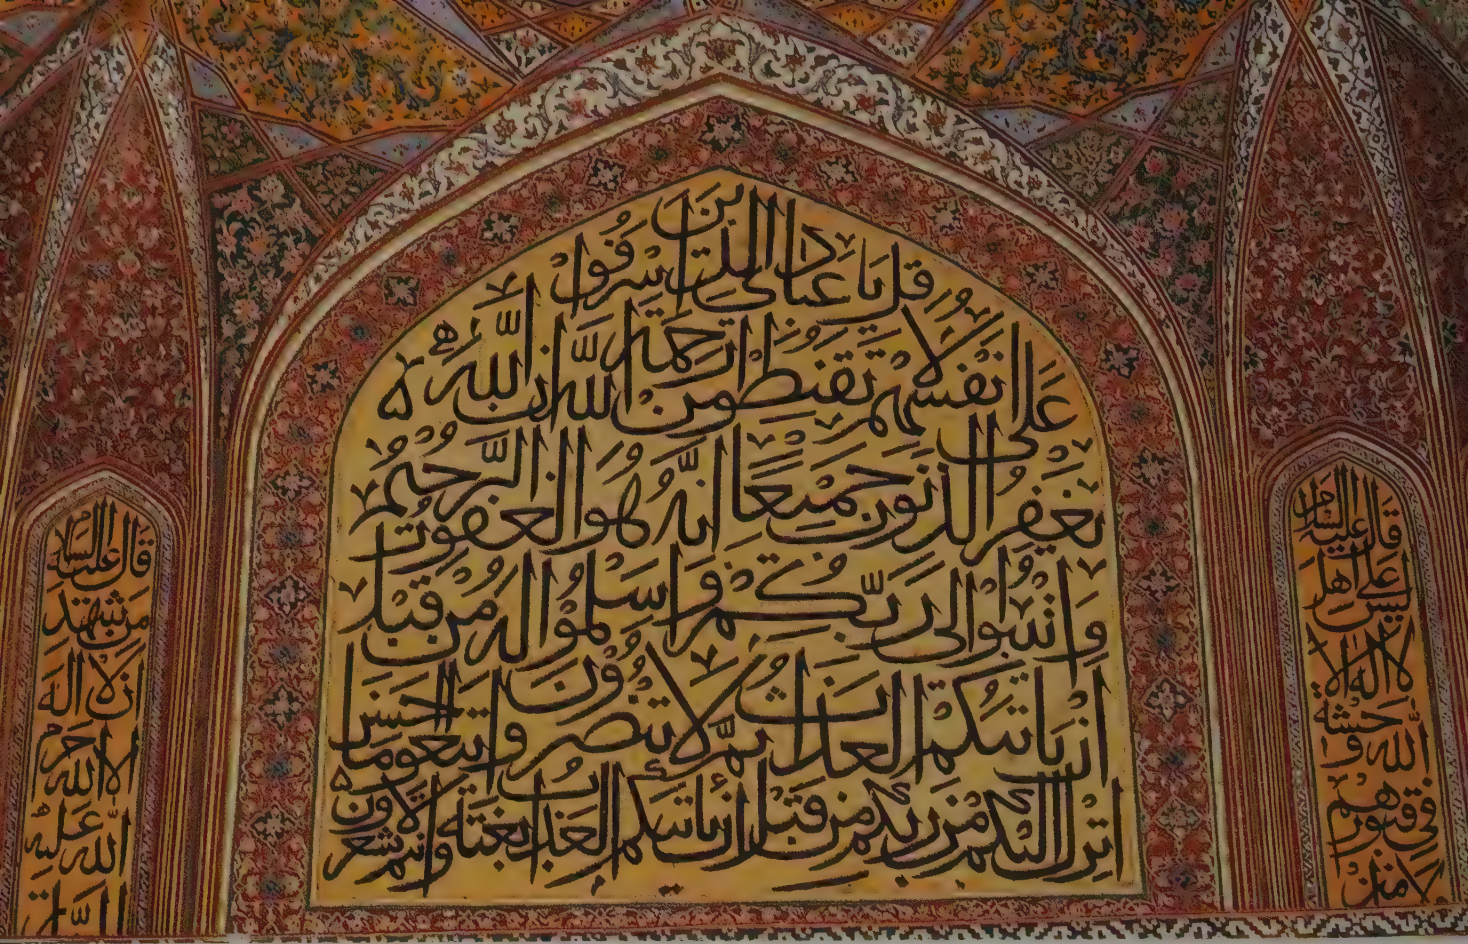 قل يا عبادي الذين اسرفوا
على انفسهم لا تقنطوا من رحمة الله ان الله
يغفر الذنوب جميعا انه هو الغفور الرحيم
وانيبوا الى ربكم واسلموا له من قبل
ان ياتيكم العذاب ثم لا تنصرون واتبعوا احسن ما
انزل اليكم من ربكم من قبل ان ياتيكم العذاب بغتة وانتم لا تشعرون
قال عليه السلام
ليس على اهل
لا اله الا
الله وحشة
في قبورهم
ولا
قال عليه السلام
من شهد
ان لا اله
الا الله حرم
الله عليه